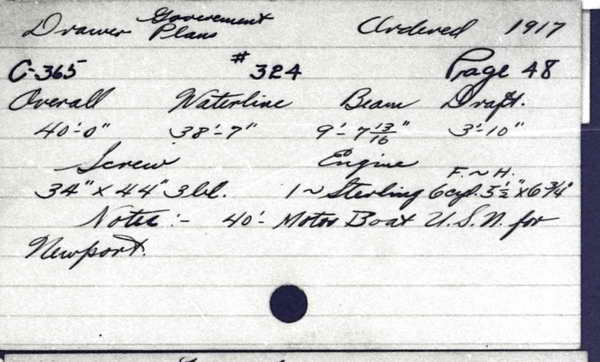 Drawer Government Plans Ordered 1917
C-365 #324 Page 48
Overall Waterline Beam Draft.
40'-0" 38'-7" 9'-7 13/16" 3'-10"
Screw Engine F.~H.
34" x 44" 3 bl. 1 ~ Sterling 6 cyl. 5 1/2" x 6 3/4"
Notes :- 40'- Motor Boat U.S.N. for
Newport.